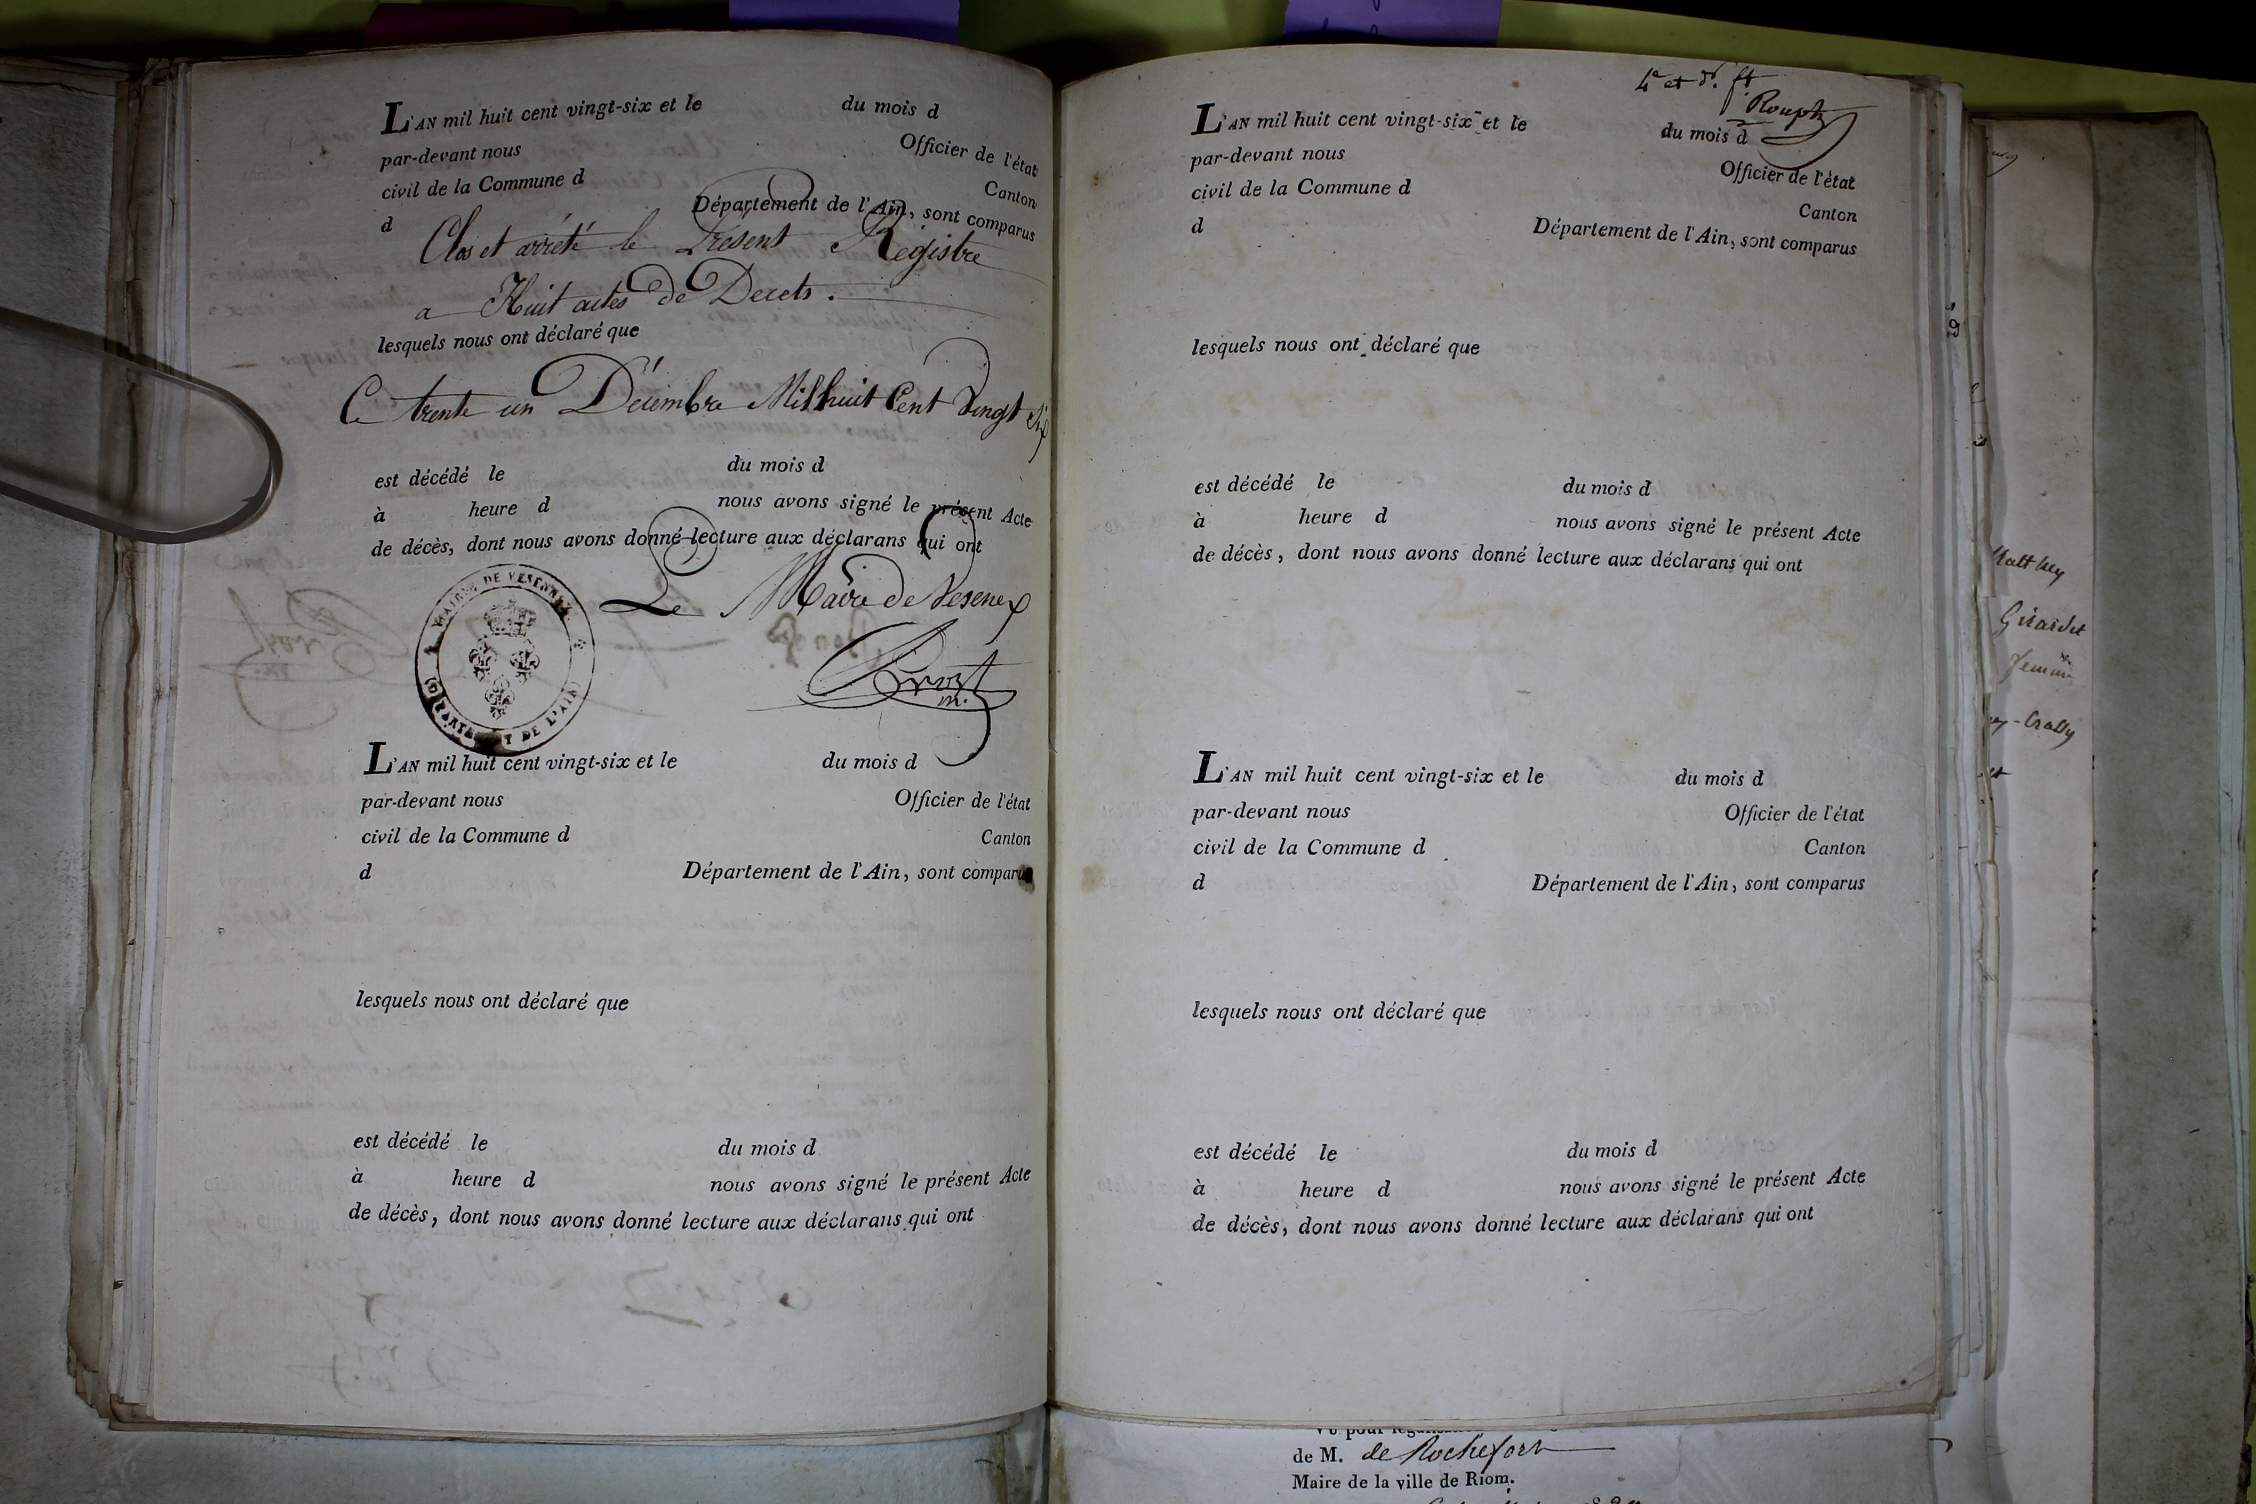 L'AN mil huit cent vingt-six et le du mois d
par-devant nous Officier de l'état
civil de la Commune d Canton
d Département de l'Ain, sont comparus
Clos et arrété le Présent Régistre
a Huit actes de Décets.
lesquels nous ont déclaré que
Ce trente un Décembre Mil huit Cent Vingt Six
est décédé le du mois d
à heure d nous avons signé le présent Acte
de décès, dont nous avons donné lecture aux déclarans qui ont
Le Maire de Vesenex
MAIRIE DE VESENEX
(DÉPARTEMENT DE L'AIN)
Prost
m.
L'AN mil huit cent vingt-six et le du mois d
par-devant nous Officier de l'état
civil de la Commune d Canton
d Département de l'Ain, sont comparus
lesquels nous ont déclaré que
est décédé le du mois d
à heure d nous avons signé le présent Acte
de décès, dont nous avons donné lecture aux déclarans qui ont
4e et dr. ft
Rouph
L'AN mil huit cent vingt-six et le du mois d
par-devant nous Officier de l'état
civil de la Commune d Canton
d Département de l'Ain, sont comparus
lesquels nous ont déclaré que
est décédé le du mois d
à heure d nous avons signé le présent Acte
de décès, dont nous avons donné lecture aux déclarans qui ont
L'AN mil huit cent vingt-six et le du mois d
par-devant nous Officier de l'état
civil de la Commune d Canton
d Département de l'Ain, sont comparus
lesquels nous ont déclaré que
est décédé le du mois d
à heure d nous avons signé le présent Acte
de décès, dont nous avons donné lecture aux déclarans qui ont
Matthey
Girardet
Vu pour
de M. de Rochefort
Maire de la ville de Riom.